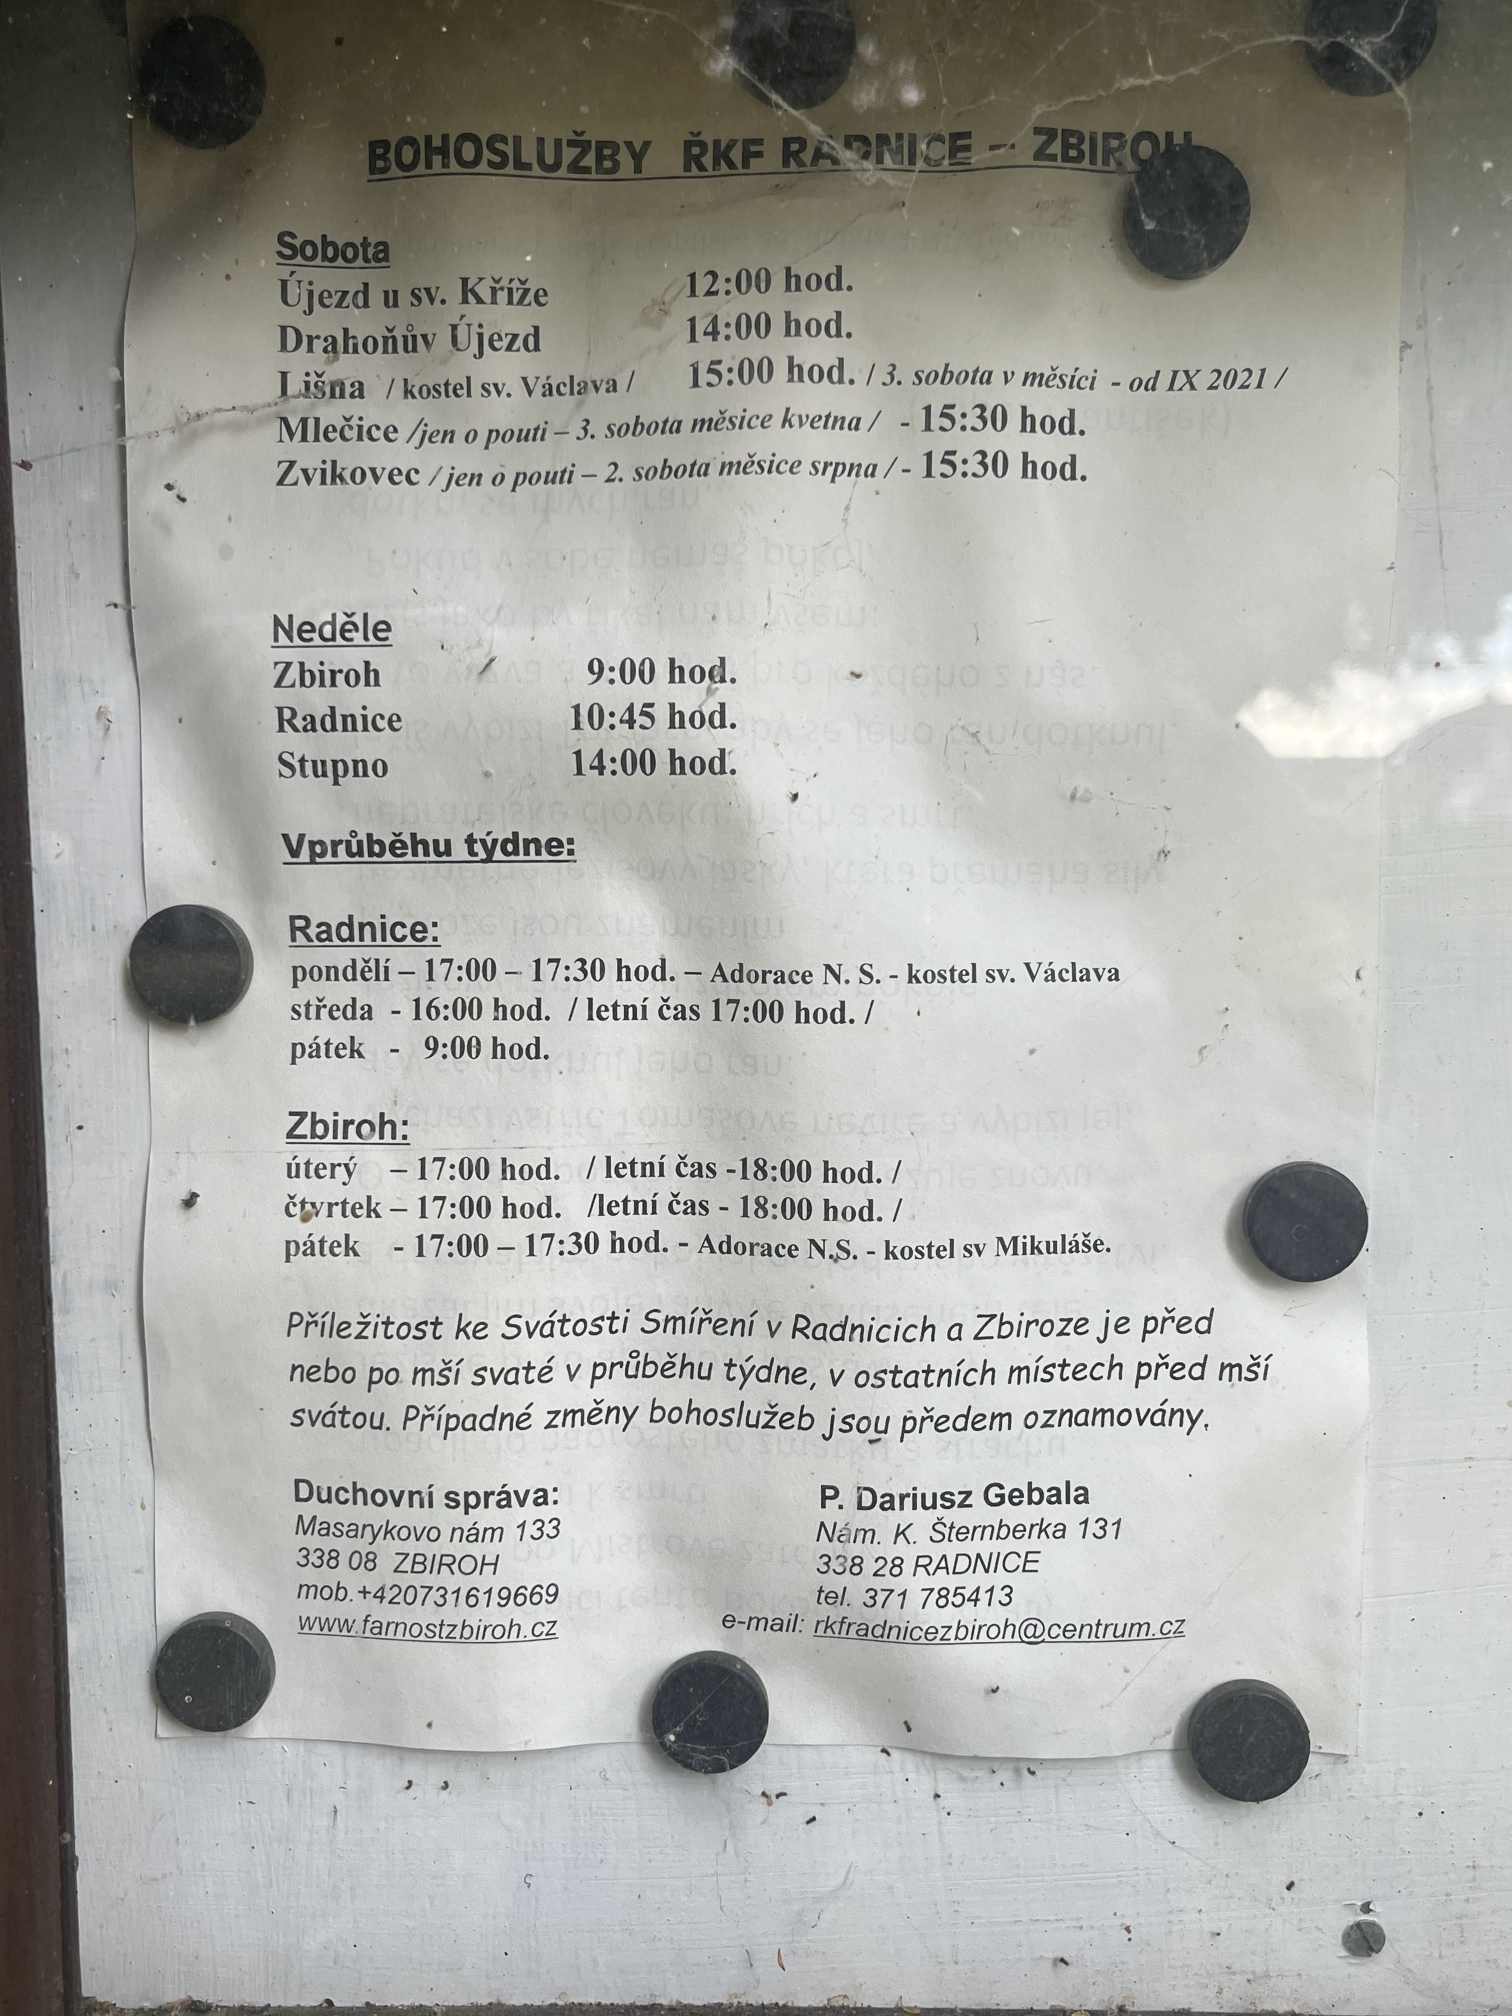 BOHOSLUŽBY ŘKF RADNICE – ZBIROH
Sobota
Újezd u sv. Kříže 12:00 hod.
Drahoňův Újezd 14:00 hod.
Lišna / kostel sv. Václava / 15:00 hod. / 3. sobota v měsíci - od IX 2021 /
Mlečice /jen o pouti – 3. sobota měsice kvetna / - 15:30 hod.
Zvikovec / jen o pouti – 2. sobota měsice srpna / - 15:30 hod.
Neděle
Zbiroh 9:00 hod.
Radnice 10:45 hod.
Stupno 14:00 hod.
Vprůběhu týdne:
Radnice:
pondělí – 17:00 – 17:30 hod. – Adorace N. S. - kostel sv. Václava
středa - 16:00 hod. / letní čas 17:00 hod. /
pátek - 9:00 hod.
Zbiroh:
úterý – 17:00 hod. / letní čas -18:00 hod. /
čtvrtek – 17:00 hod. /letní čas - 18:00 hod. /
pátek - 17:00 – 17:30 hod. - Adorace N.S. - kostel sv Mikuláše.
Příležitost ke Svátosti Smíření v Radnicich a Zbiroze je před
nebo po mší svaté v průběhu týdne, v ostatních místech před mší
svátou. Případné změny bohoslužeb jsou předem oznamovány.
Duchovní správa: P. Dariusz Gebala
Masarykovo nám 133 Nám. K. Šternberka 131
338 08 ZBIROH 338 28 RADNICE
mob.+420731619669 tel. 371 785413
www.farnostzbiroh.cz e-mail: rkfradnicezbiroh@centrum.cz